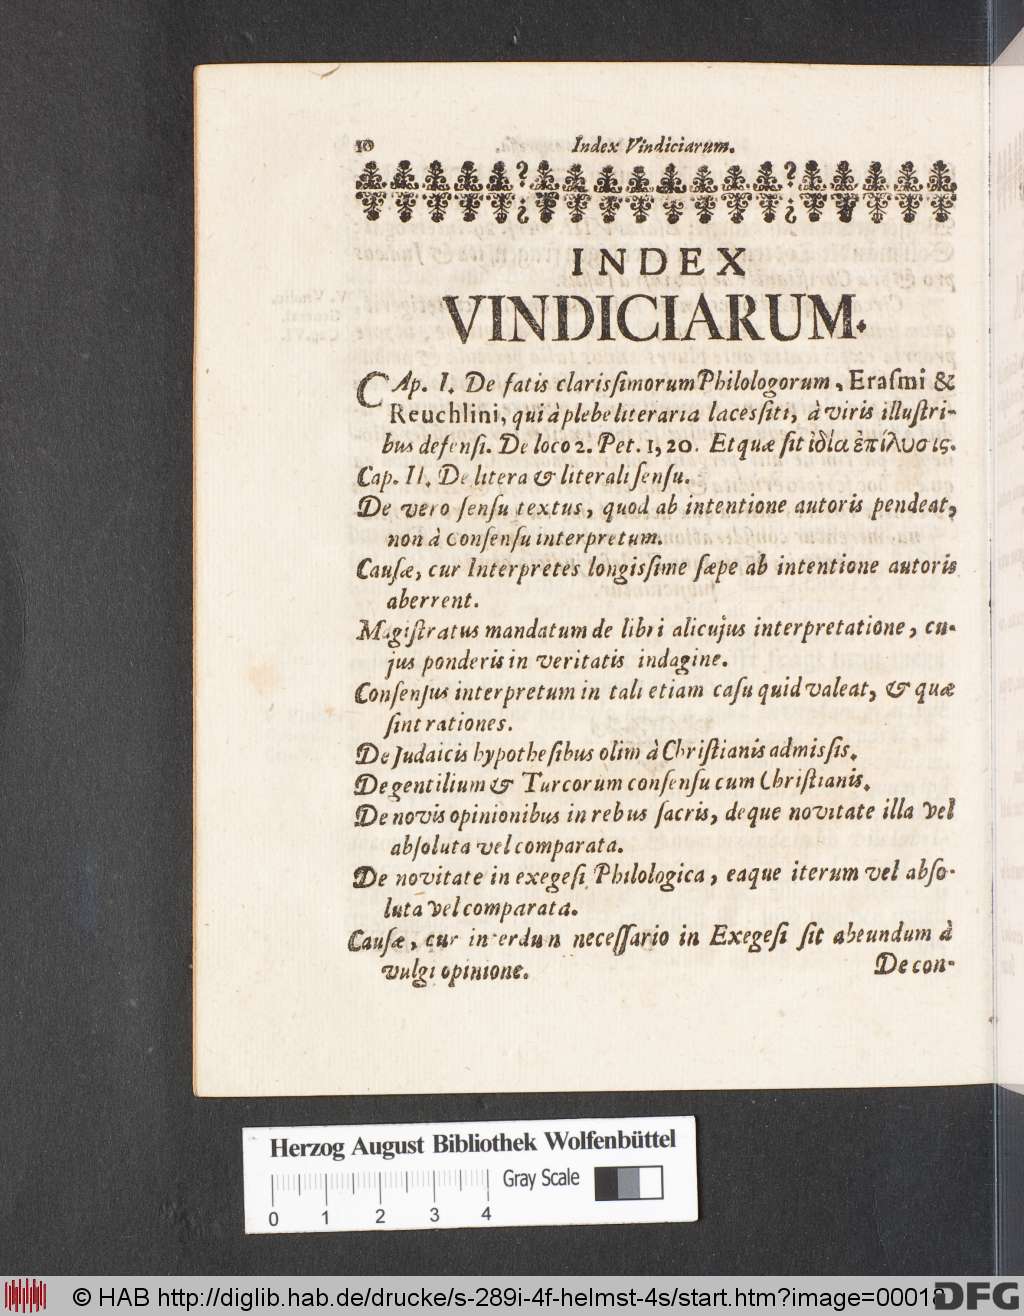 10 Index Vindiciarum.
INDEX
VINDICIARUM.
CAp. I. De fatis clarissimorum Philologorum, Erasmi &
Reuchlini, qui à plebe literaria lacessiti, à viris illustri-
bus defensi. De loco 2. Pet. 1, 20. Et quæ sit ἰδία ἐπίλυσις.
Cap. II. De litera & literali sensu.
De vero sensu textus, quod ab intentione autoris pendeat,
non à consensu interpretum.
Causæ, cur Interpretes longissime sæpe ab intentione autoris
aberrent.
Magistratus mandatum de libri alicujus interpretatione, cu-
jus ponderis in veritatis indagine.
Consensus interpretum in tali etiam casu quid valeat, & quæ
sint rationes.
De Judaicis hypothesibus olim à Christianis admissis.
De gentilium & Turcorum consensu cum Christianis.
De novis opinionibus in rebus sacris, deque novitate illa vel
absoluta vel comparata.
De novitate in exegesi Philologica, eaque iterum vel abso-
luta vel comparata.
Causæ, cur interdum necessario in Exegesi sit abeundum à
vulgi opinione.
De con-
Herzog August Bibliothek Wolfenbüttel
Gray Scale
0 1 2 3 4
© HAB http://diglib.hab.de/drucke/s-289i-4f-helmst-4s/start.htm?image=00018
DFG